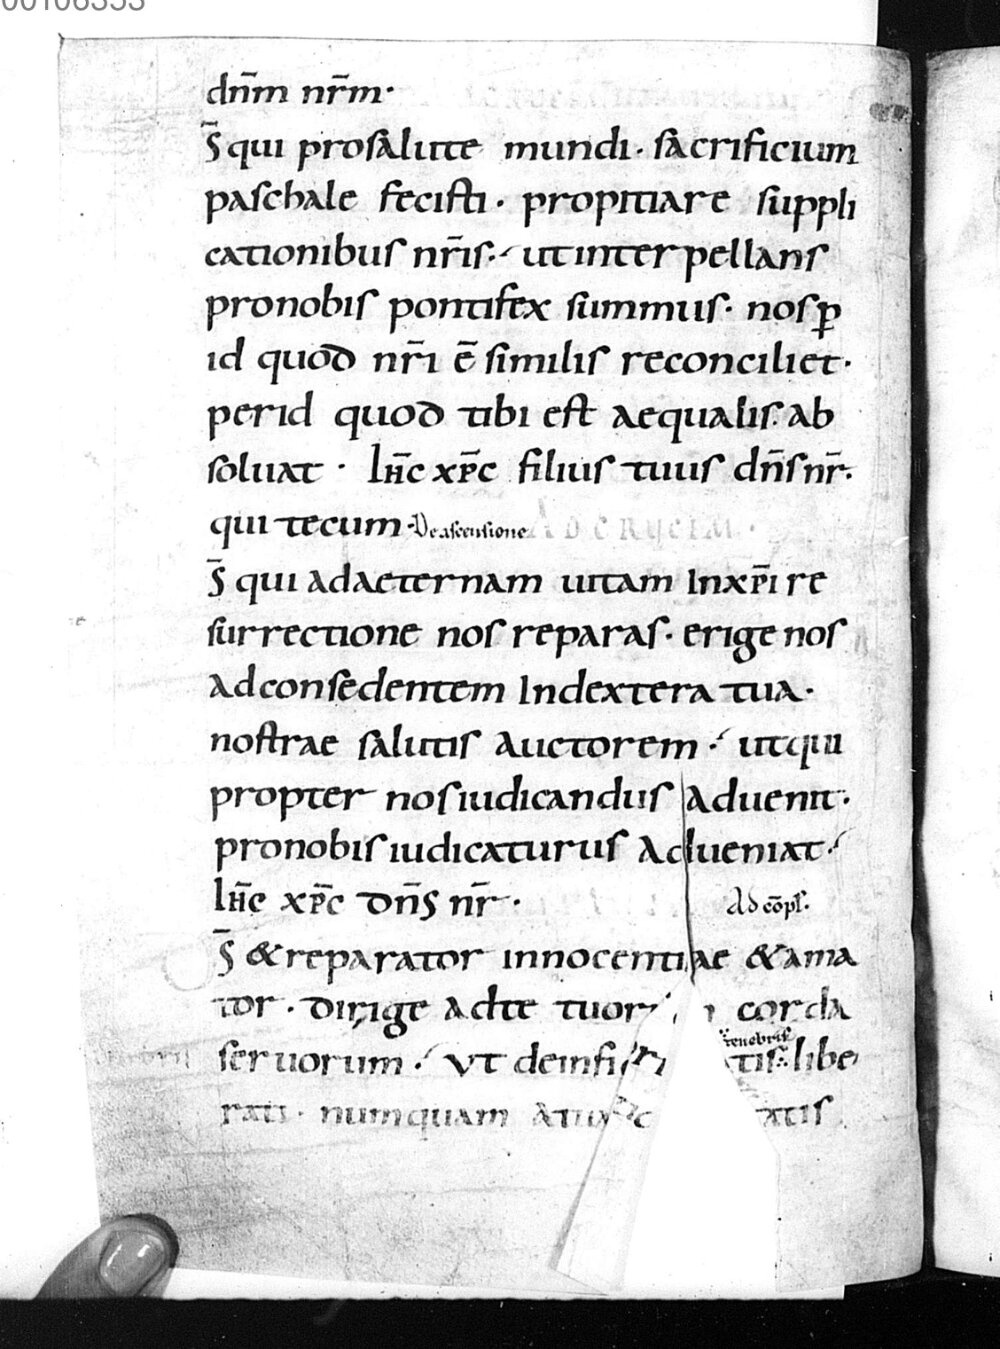 00106353
dn̄m nr̄m·
S̄ qui prosalute mundi· sacrificium
paschale fecisti· propitiare suppli
cationibus nr̄is·⸍ ut interpellans
pronobis pontifex summus· nos ꝑ
id quod nr̄i ē similis reconciliet·
perid quod tibi est aequalis· ab
soluat· Ih̄c xp̄c filius tuus dn̄s nr̄·
qui tecum· De ascensione
S̄ qui adaeternam uitam Inxp̄i re
surrectione nos reparas· erige nos
adconsedentem Indextera tua·
nostrae salutis auctorem·⸍ utqui
propter nos iudicandus aduenit·
pronobis iudicaturus adueniat·⸍
Ih̄c xp̄c dn̄s nr̄· Ad cōpl·
S̄ & reparator innocentiae & ama
tor· dirige adte corda
seruorum·⸍ Ut tenebris libe
rati· numquam